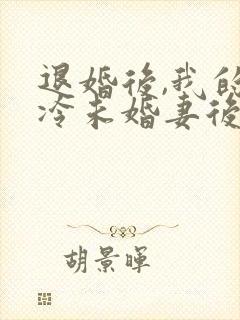 退婚後,我的
冷未婚妻後
胡景暉